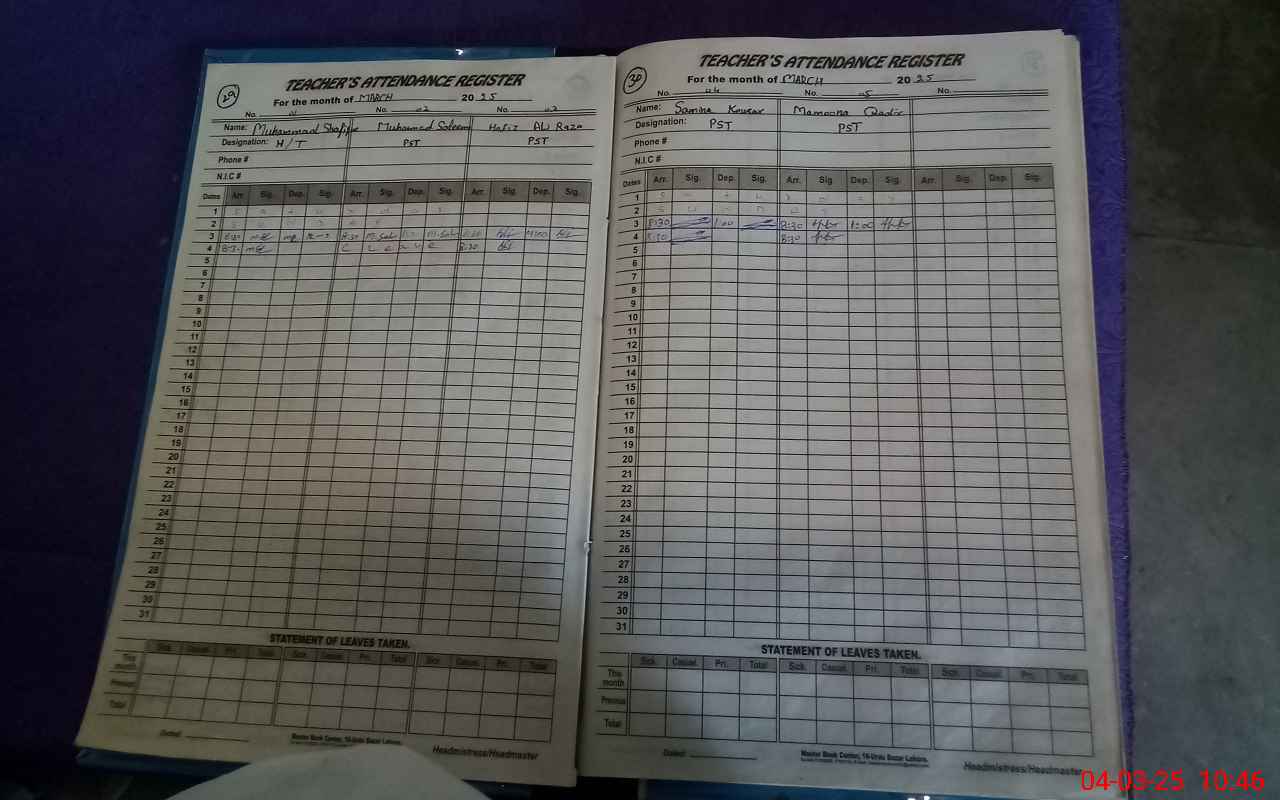 29
TEACHER'S ATTENDANCE REGISTER
For the month of MARCH 2025
No. No. 02 No. 03
Name: Muhammad Shafique Muhammad Saleem Hafiz Ali Raza
Designation: H/T PST PST
Phone #
N.I.C #
Dates Arr. Sig. Dep. Sig. Arr. Sig. Dep. Sig. Arr. Sig. Dep. Sig.
1 S a t u r d a y
2 S u n d a y
3 8:30 8:30
4 8:30 C Leave 8:30
5
6
7
8
9
10
11
12
13
14
15
16
17
18
19
20
21
22
23
24
25
26
27
28
29
30
31
STATEMENT OF LEAVES TAKEN.
Sick. Casual. Pri. Total Sick. Casual. Pri. Total Sick. Casual. Pri. Total
This month
Previous
Total
Dated:
Master Book Center, 16-Urdu Bazar Lahore.
Headmistress/Headmaster
30
TEACHER'S ATTENDANCE REGISTER
For the month of MARCH 2025
No. 04 No. 05 No.
Name: Samina Kousar Mamoona Qadir
Designation: PST PST
Phone #
N.I.C #
Dates Arr. Sig. Dep. Sig. Arr. Sig. Dep. Sig. Arr. Sig. Dep. Sig.
1 S a t u r d a y
2 S u n d a y
3 8:30 1:00 8:30 1:00
4 8:30 8:30
5
6
7
8
9
10
11
12
13
14
15
16
17
18
19
20
21
22
23
24
25
26
27
28
29
30
31
STATEMENT OF LEAVES TAKEN.
Sick. Casual. Pri. Total Sick. Casual. Pri. Total Sick. Casual. Pri. Total
This month
Previous
Total
Dated:
Master Book Center, 16-Urdu Bazar Lahore.
Headmistress/Headmaster
04-03-25 10:46